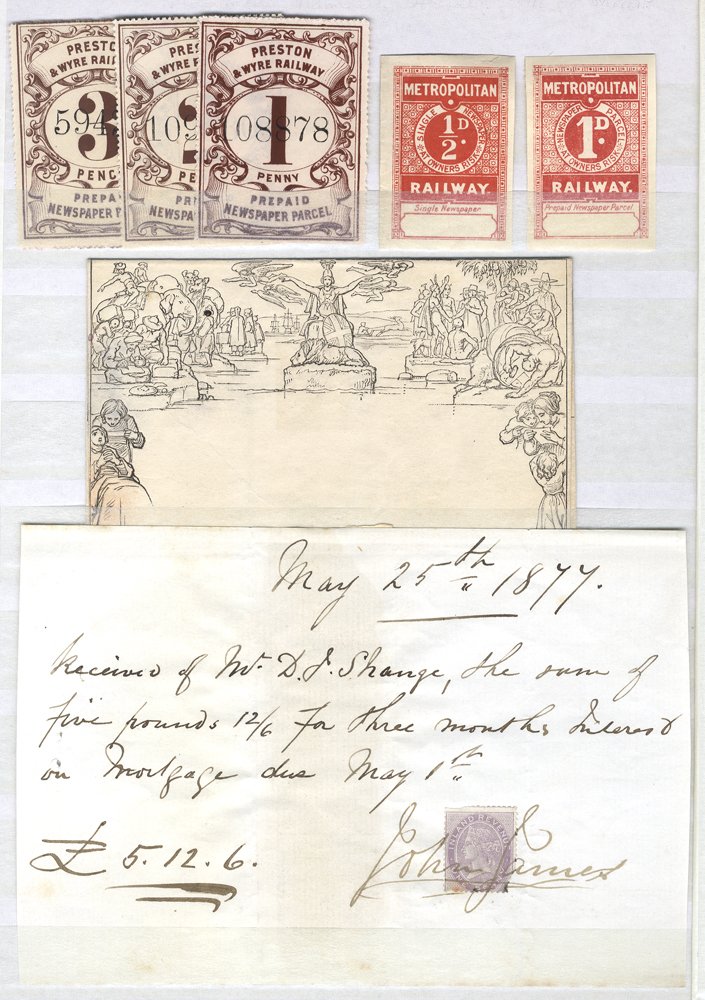 PRESTON
& WYRE RAI
594
3
PENC
PREPA
NEWSPAPER P
PRES
& WYRE
109
2
PE
PREP
NEWSPA
PRESTON
& WYRE RAILWAY
108878
1
PENNY
PREPAID
NEWSPAPER PARCEL
METROPOLITAN
SINGLE NEWSPAPER
½D
AT OWNERS RISK
RAILWAY.
Single Newspaper
METROPOLITAN
NEWSPAPER PARCEL
1D.
AT OWNERS RISK
RAILWAY.
Prepaid Newspaper Parcel.
May 25th 1877.
Received of Mr. D. J. Shange, the sum of
five pounds 12/6 for three months Interest
on Mortgage due May 1st
£ 5.12.6.
INLAND REVEN
John James